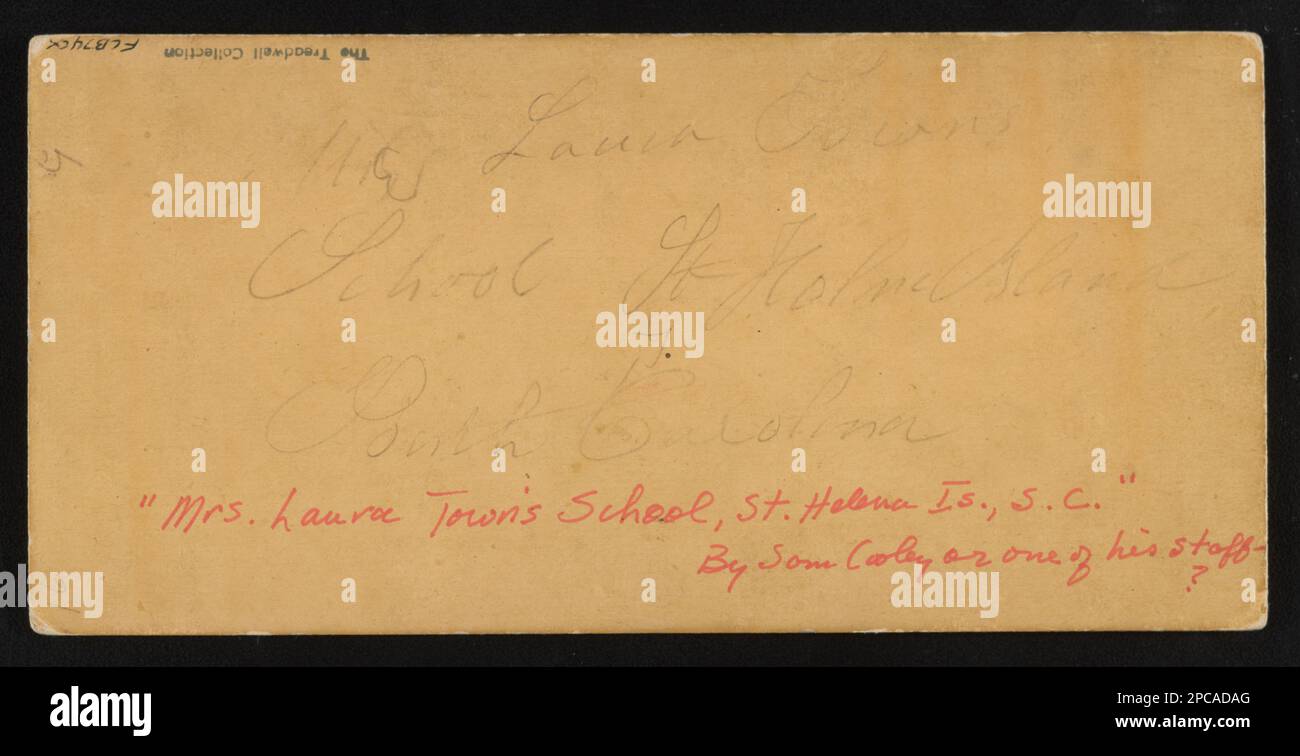 The Treadwell Collection
Mrs Laura Towns
School St Halne Island
South Carolina
"Mrs. Laura Town's School, St. Helena Is., S.C."
By Sam Cooley or one of his staff-
?
alamy
Image ID: 2PCADAG
www.alamy.com